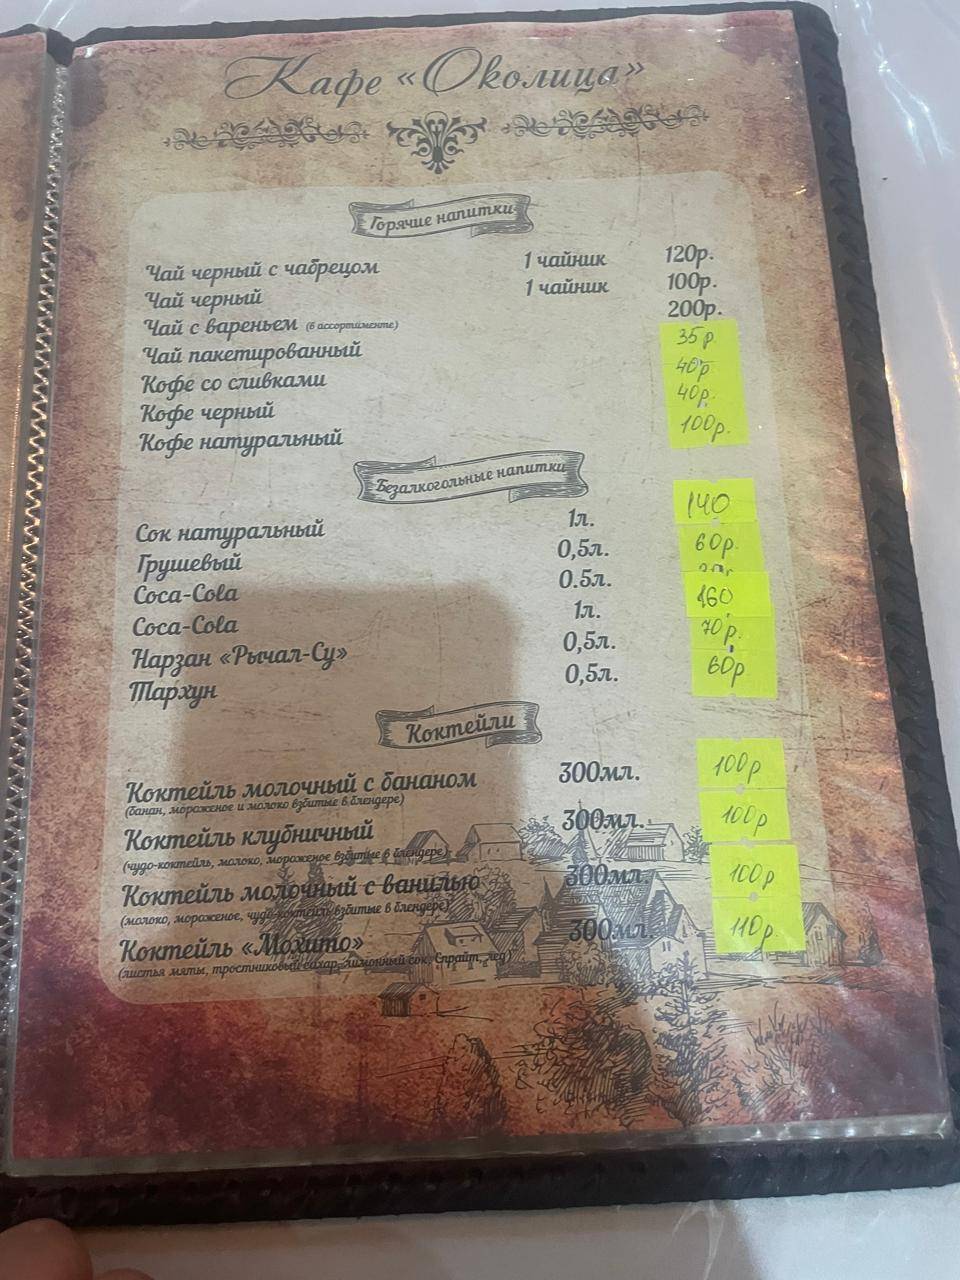 Кафе «Околица»
Горячие напитки
Чай черный с чабрецом 1 чайник 120р.
Чай черный 1 чайник 100р.
Чай с вареньем (в ассортименте) 200р.
Чай пакетированный 35р.
Кофе со сливками 40р
Кофе черный 40р.
Кофе натуральный 100р.
Безалкогольные напитки
Сок натуральный 1л. 140
Грушевый 0,5л. 60р.
Coca-Cola 0.5л.
Coca-Cola 1л. 160
Нарзан «Рычал-Су» 0,5л. 70р.
Тархун 0,5л. 60р
Коктейли
Коктейль молочный с бананом 300мл. 100р
(банан, мороженое и молоко взбитые в блендере)
Коктейль клубничный 300мл. 100р
(чудо-коктейль, молоко, мороженое взбитые в блендере)
Коктейль молочный с ванилью 300мл. 100р
(молоко, мороженое, чудо-коктейль взбитые в блендере)
Коктейль «Мохито» 300мл. 110р.
(листья мяты, тростниковый сахар, лимонный сок, Спрайт, лед)